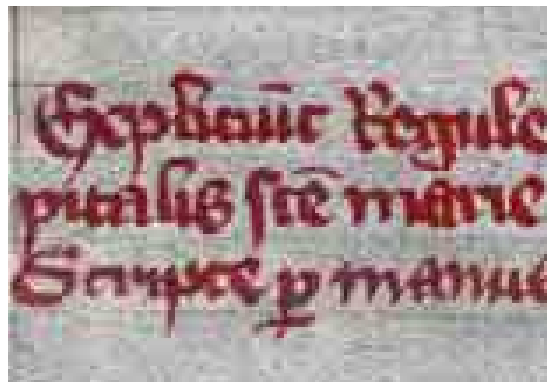 Expliciūt Regule
pitalis sctē marie
Scripte ꝑ manus